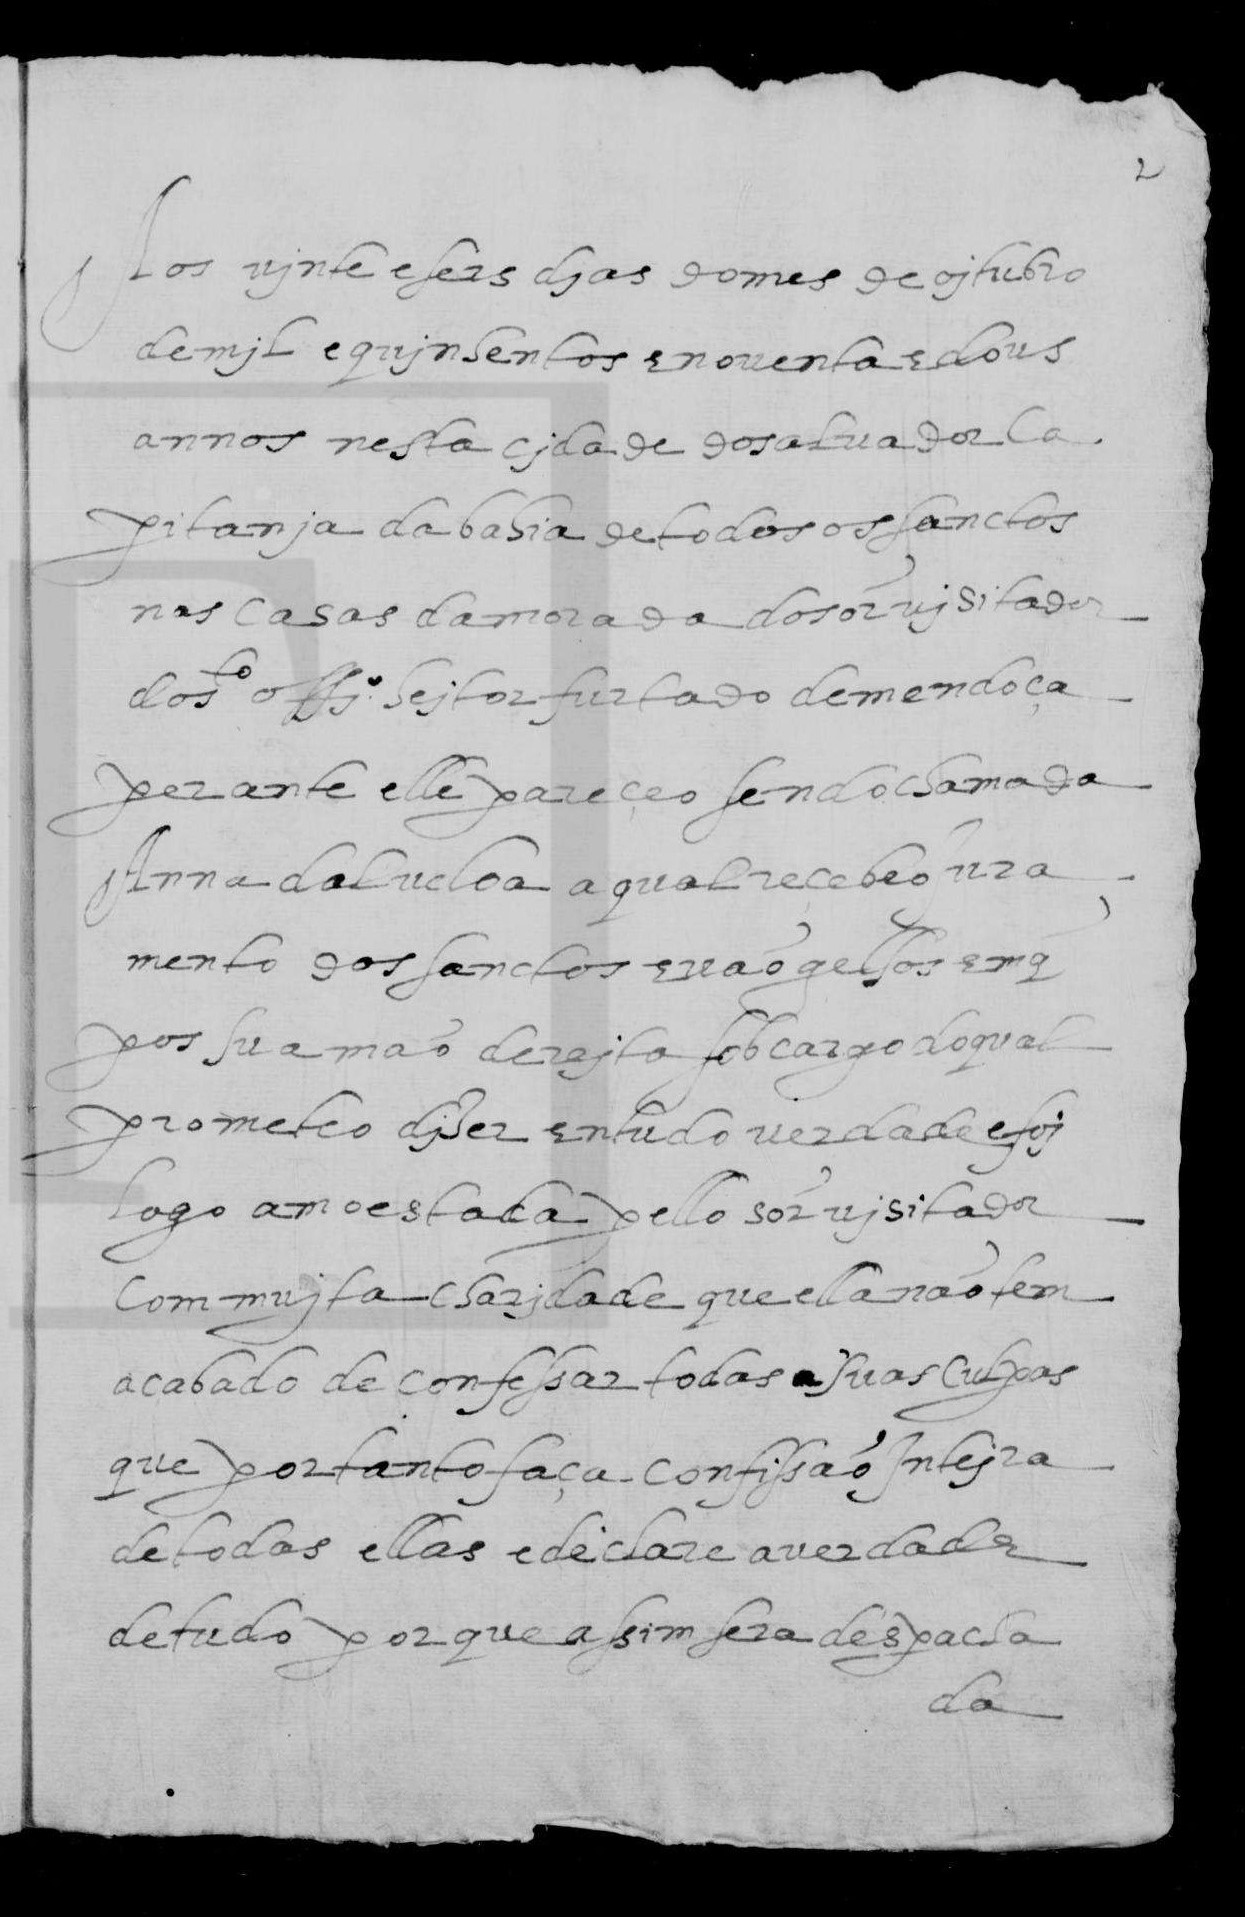 2
Aos vjnte e seis djas do mes de ojtubro
de mjl e qujnhentos e noventa e dous
annos nesta cjdade do saluador Ca
pitanja da bahia de todos os sanctos
nas casas da morada do sor vjsitador
do sto offjo hejtor furtado de mendoça
perante elle pareçeo sendo chamada
Anna dalueloa a qual reçebeo jura
mento dos sanctos evãogelhos em q̃
pos sua mão derejta sob cargo do qual
prometeo djzer en tudo verdade e foj
logo amoestada pello sor vjsitador
com mujta charjdade que ella não tem
acabado de confessar todas as suas culpas
que portanto faça confissão Intejra
de todas ellas e declare a verdade
de tudo porque assim sera despacha
da